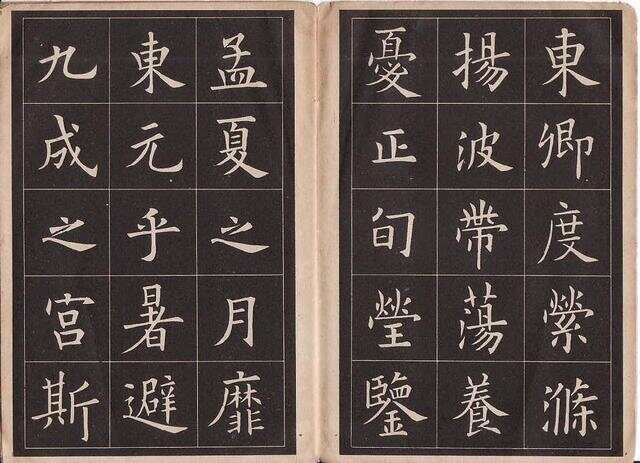 東卿度縈滌
揚波帶蕩養
憂正旬瑩鑒
孟夏之月靡
東元乎暑避
九成之宮斯